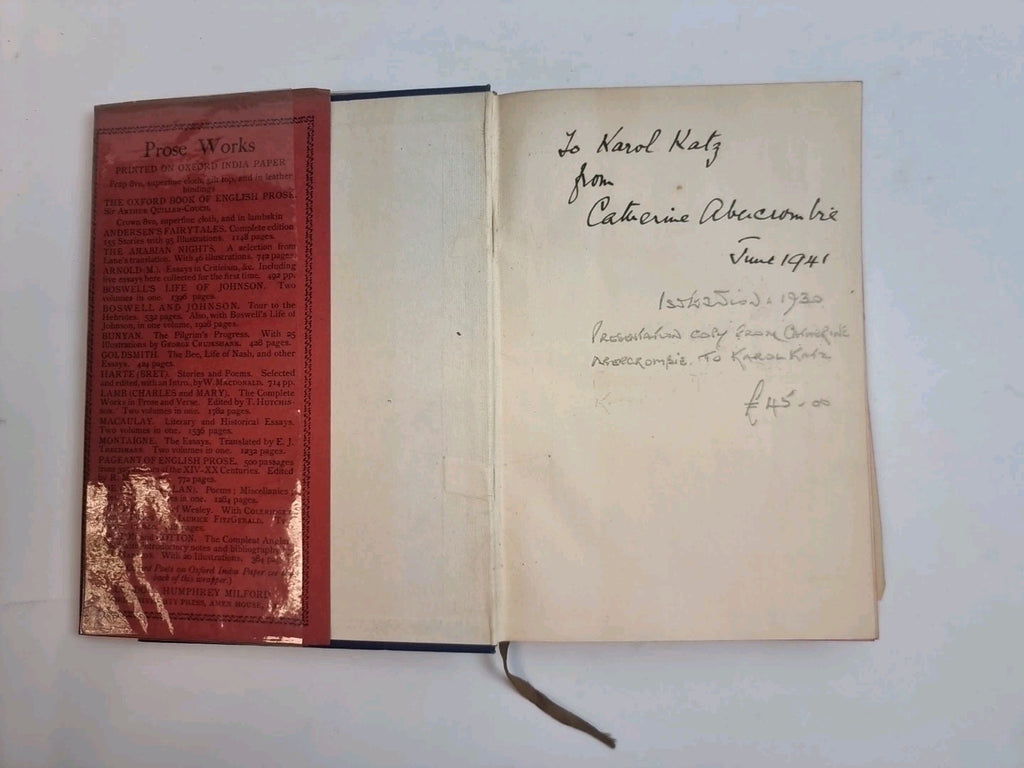 Prose Works
PRINTED ON OXFORD INDIA PAPER
Fcap 8vo, superfine cloth, gilt top, and in leather
bindings
THE OXFORD BOOK OF ENGLISH PROSE.
Sir ARTHUR QUILLER-COUCH.
Crown 8vo, superfine cloth, and in lambskin
ANDERSEN'S FAIRYTALES. Complete edition
155 Stories with 95 Illustrations. 1148 pages.
THE ARABIAN NIGHTS. A selection from
Lane's translation. With 46 illustrations. 742 pages.
ARNOLD (M.). Essays in Criticism, &c. Including
five essays here collected for the first time. 492 pp.
BOSWELL'S LIFE OF JOHNSON. Two
volumes in one. 1396 pages.
BOSWELL AND JOHNSON. Tour to the
Hebrides. 532 pages. Also, with Boswell's Life of
Johnson, in one volume, 1928 pages.
BUNYAN. The Pilgrim's Progress. With 25
illustrations by GEORGE CRUIKSHANK. 428 pages.
GOLDSMITH. The Bee, Life of Nash, and other
Essays. 424 pages.
HARTE (BRET). Stories and Poems. Selected
and edited, with an Intro., by W. MACDONALD. 714 pp.
LAMB (CHARLES and MARY). The Complete
Works in Prose and Verse. Edited by T. HUTCHIN-
SON. Two volumes in one. 1782 pages.
MACAULAY. Literary and Historical Essays.
Two volumes in one. 1536 pages.
MONTAIGNE. The Essays. Translated by E. J.
TRECHMANN. Two volumes in one. 1232 pages.
PAGEANT OF ENGLISH PROSE. 500 passages
from of the XIV-XX Centuries. Edited
R. M. 772 pages.
LAN). Poems; Miscellanies;
in one. 1284 pages.
of Wesley. With COLERIDGE'S
MAURICE FITZGERALD.
pages.
COTTON. The Compleat Angler
introductory notes and bibliography
With 20 illustrations. 364
Poets on Oxford India Paper see
back of this wrapper.)
HUMPHREY MILFORD
UNIVERSITY PRESS, AMEN HOUSE,
To Karol Katz
from
Catherine Abercrombie
June 1941
1st Edition. 1930
Presentation copy from Catherine
Abercrombie. To Karol Katz
£45-00